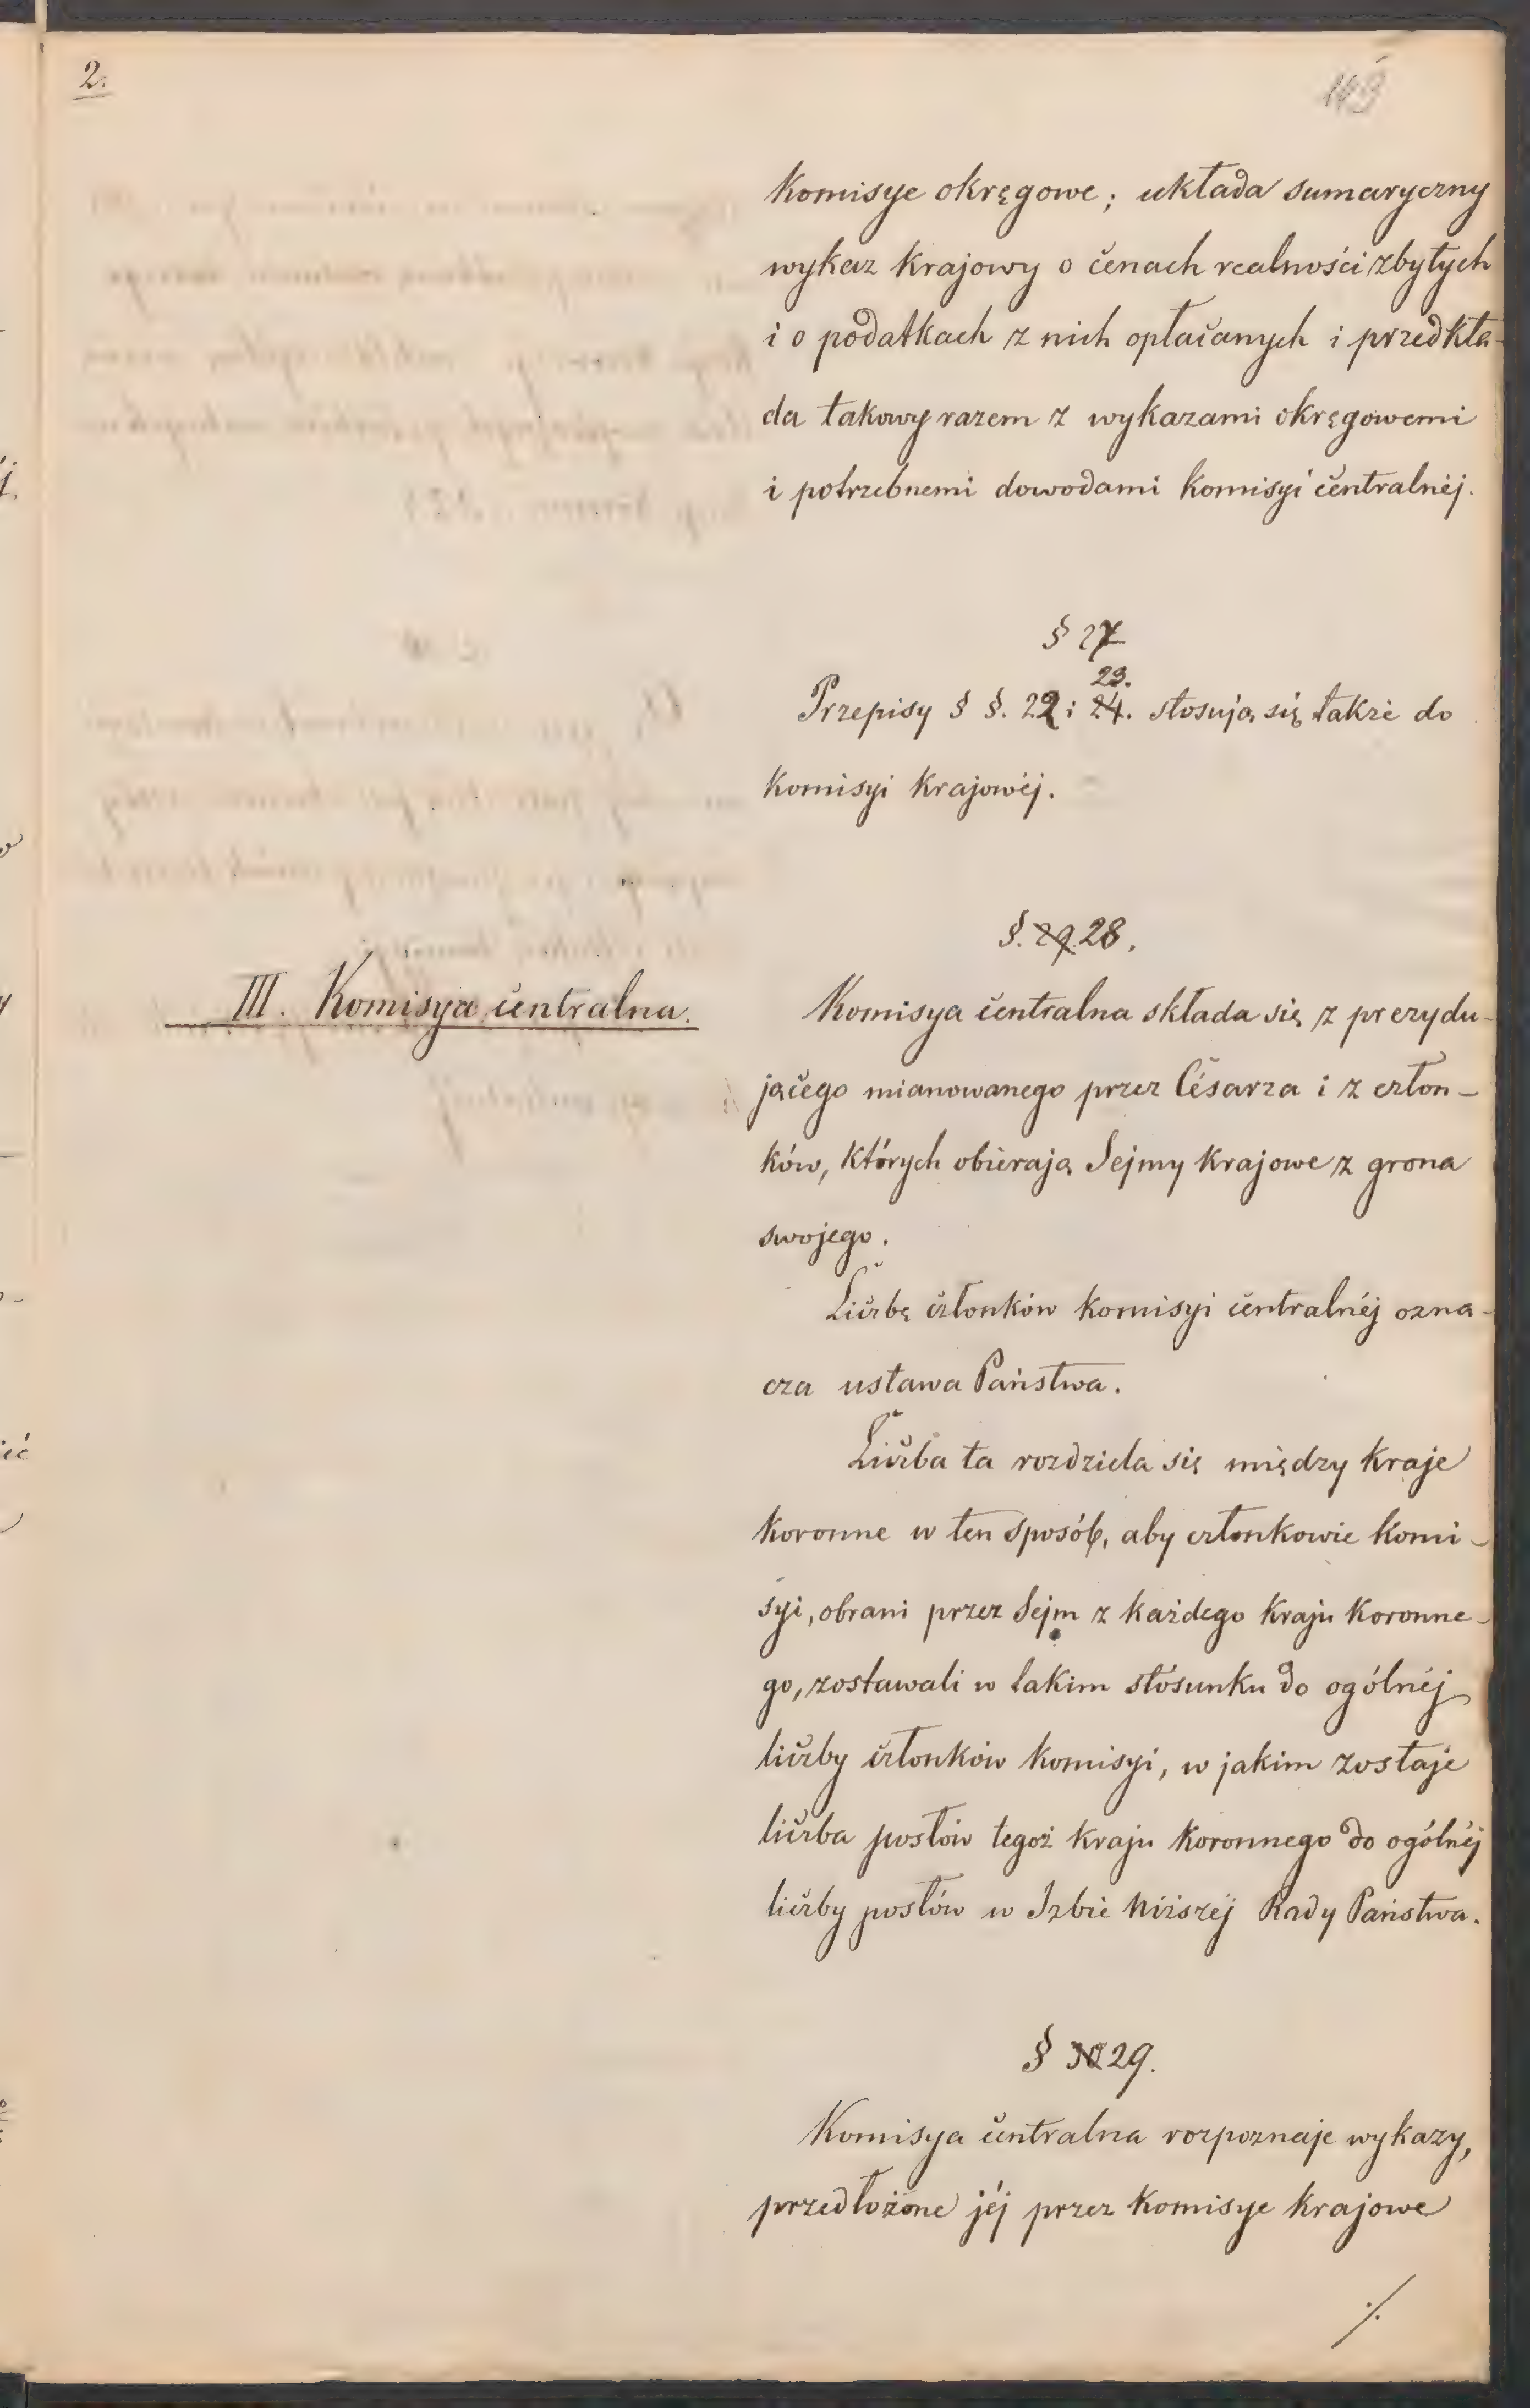 2.
143
Komisye okręgowe; układa sumaryczny
wykaz krajowy o cenach realności zbytych
i o podatkach z nich opłacanych i przedkła-
da takowy razem z wykazami okręgowemi
i potrzebnemi dowodami komisyi centralnéj.
§ 27
23.
Przepisy § §. 22 i 24. stosują się także do
Komisyi Krajowéj.
§. 29. 28.
III. Komisya centralna.
Komisya centralna składa się z prezydu-
jącego mianowanego przez Césarza i z człon-
ków, których obierają Sejmy krajowe z grona
swojego.
Liczbę członków komisyi centralnéj ozna-
cza ustawa Państwa.
Liczba ta rozdziela się między kraje
koronne w ten sposób, aby członkowie komi-
syi, obrani przez Sejm z każdego kraju koronne-
go, zostawali w takim stósunku do ogólnéj
liczby członków komisyi, w jakim zostaje
liczba posłów tegoż kraju koronnego do ogólnéj
liczby posłów w Izbie niższéj Rady Państwa.
§ 30 29.
Komisya centralna rozpoznaje wykazy,
przedłożone jéj przez komisye krajowe
./.